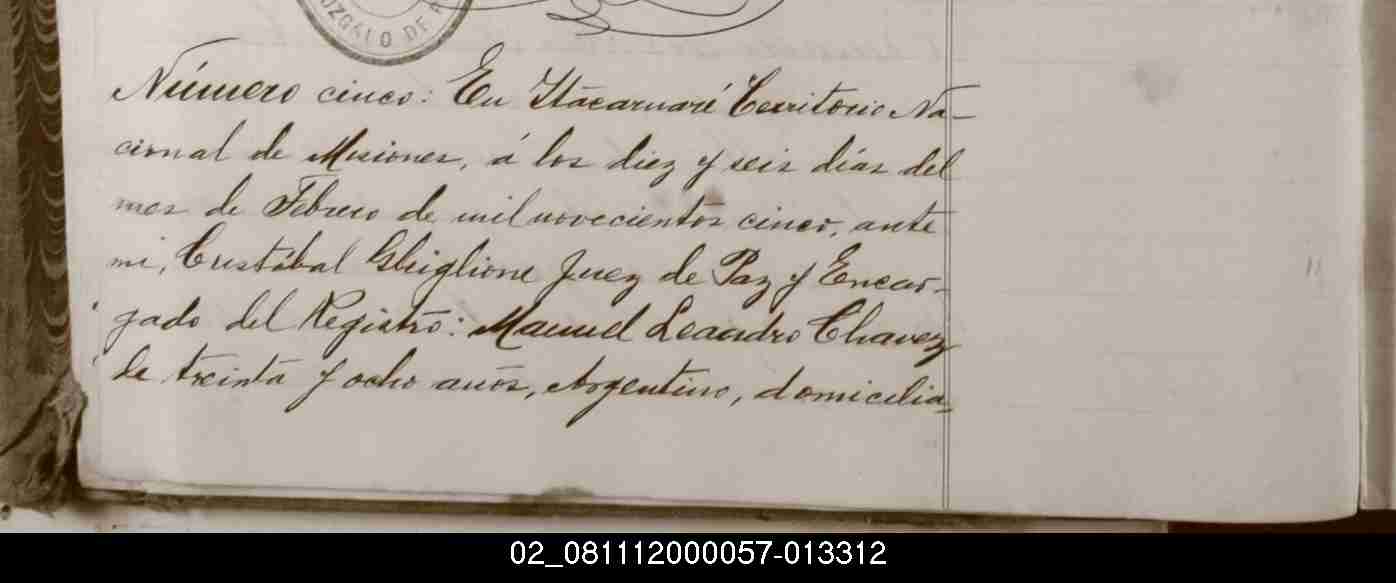 JUZGADO DE
Número cinco: En Itacaruaré Territorio Na-
cional de Misiones, á los diez y seis días del
mes de Febrero de mil novecientos cinco, ante
mi, Cristóbal Ghiglione Juez de Paz y Encar-
gado del Registro: Manuel Leandro Chavez
de treinta y ocho años, Argentino, domicilia-
02_081112000057-013312